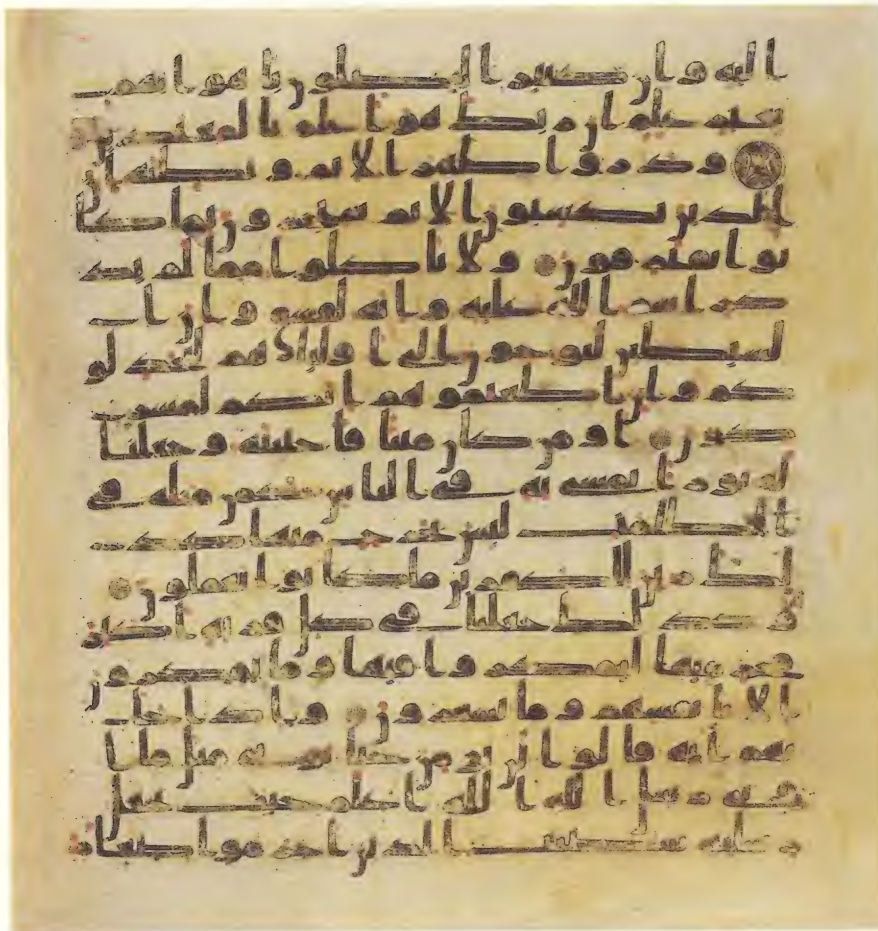 اليه وان كثيرا ليضلون باهوائهم
بغير علم ان ربك هو اعلم بالمعتدين
وذروا ظهر الاثم وبطنه ان
الذين يكسبون الاثم سيجزون بما كا
نوا يقترفون ولا تاكلوا مما لم يذ
كر اسم الله عليه وانه لفسق وان ا
لشيطين ليوحون الى اوليائهم ليجدلو
كم وان اطعتموهم انكم لمشر
كون او من كان ميتا فاحيينه وجعلنا
له نورا يمشي به في الناس كمن مثله في
الظلمت ليس بخرج منها كذ
لك زين للكفرين ما كانوا يعملون
وكذلك جعلنا في كل قرية اكبر
مجرميها ليمكروا فيها وما يمكرون
الا بانفسهم وما يشعرون واذا جا
تهم اية قالوا لن نؤمن حتى نؤتى مثل ما ا
وتي رسل الله الله اعلم حيث يجعل
رسلته سيصيب الذين اجرموا صغار